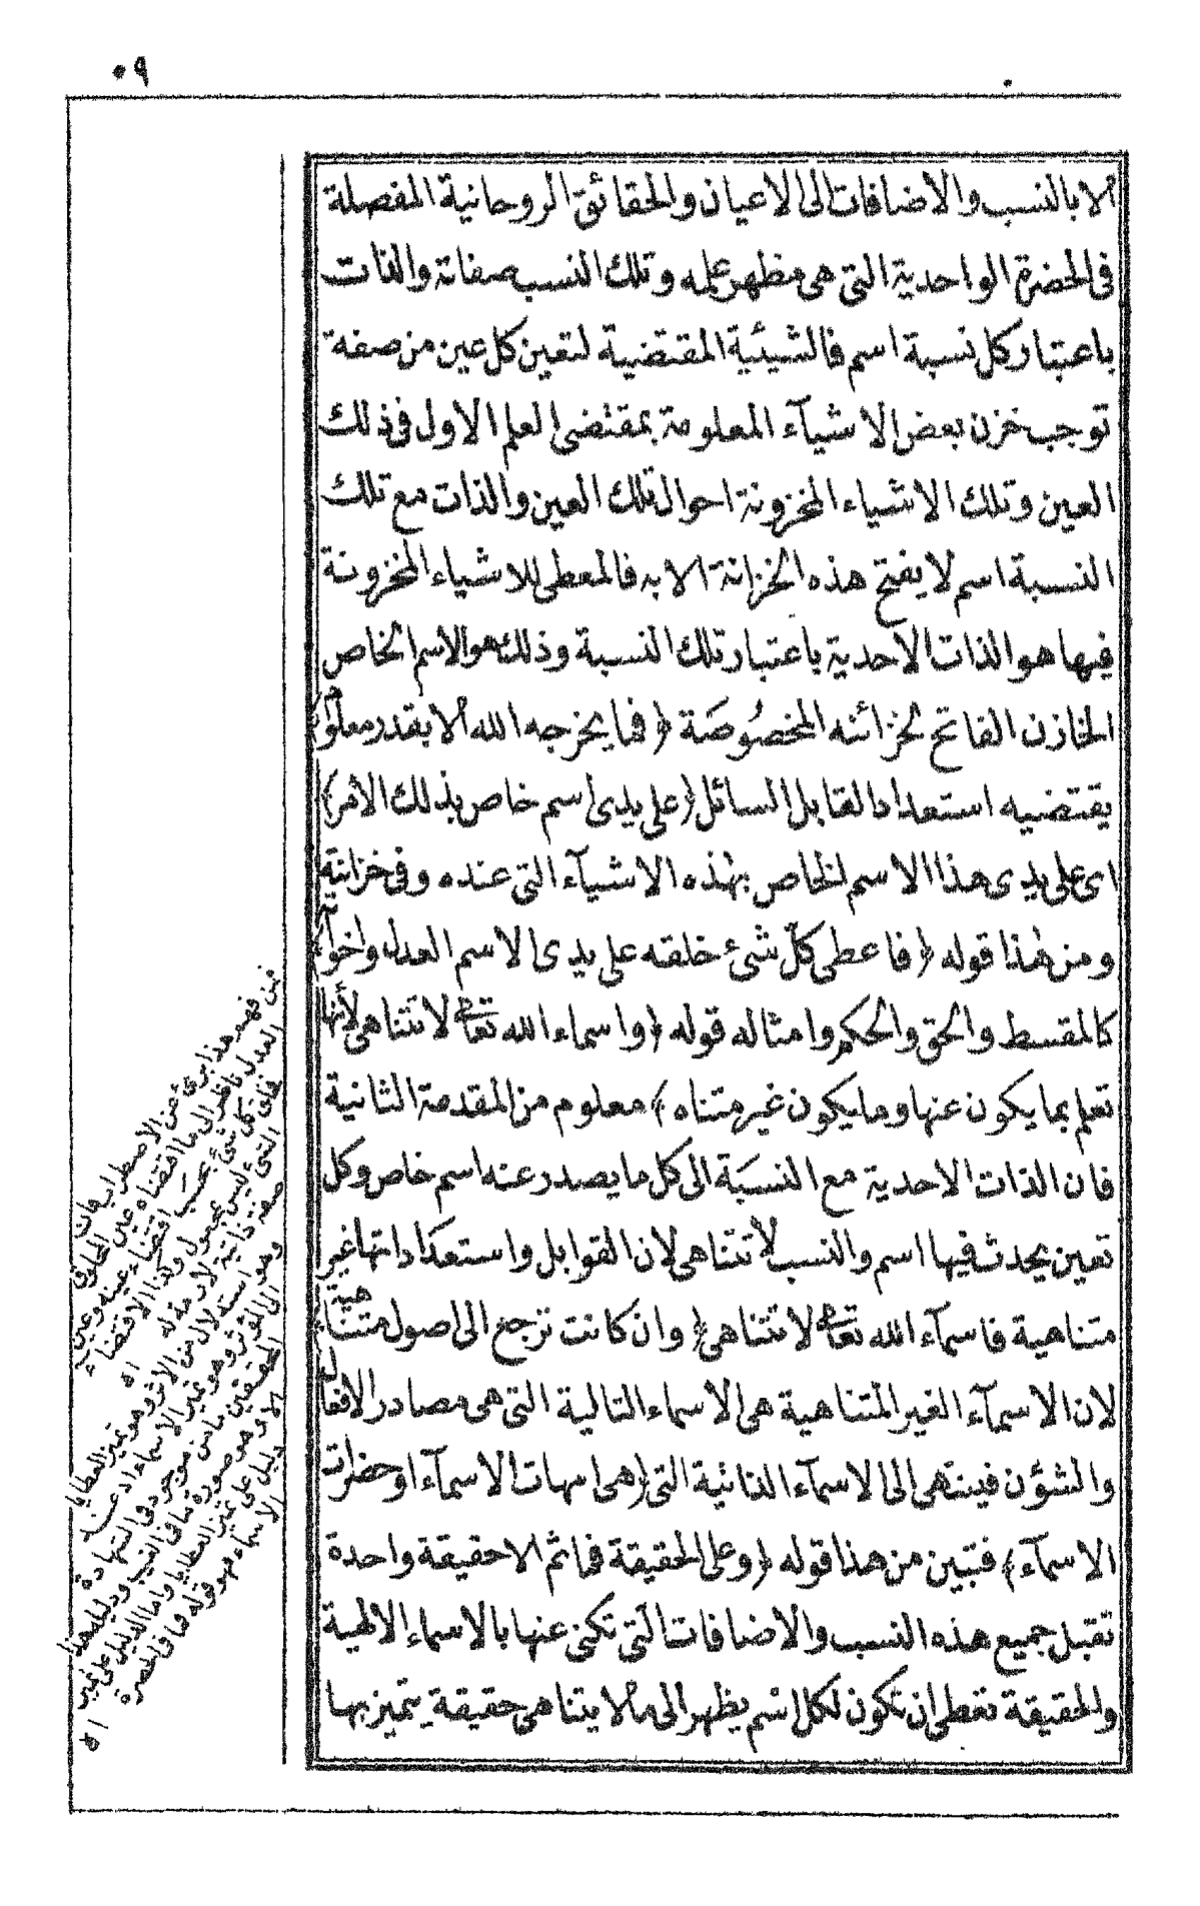 ٥٩
الا بالنسب والاضافات الى الاعيان والحقائق الروحانية المفصلة
فى الحضرة الواحدية التى هى مظهر علمه وتلك النسب صفاته والذات
باعتبار كل نسبة اسم فالشيئية المقتضية لتعين كل عين من صفة
توجب خزن بعض الاشيآء المعلومة بمقتضى العلم الاول فى ذلك
العين وتلك الاشياء المخزونة احوال تلك العين والذات مع تلك
النسبة اسم لا يفتح هذه الخزانة الا به فالمعطى للاشياء المخزونة
فيها هو الذات الاحدية باعتبار تلك النسبة وذلك هو الاسم الخاص
الخازن الفاتح لخزائنه المخصُوصَة ﴿ فما يخرجه الله الا بقدر معلوم ﴾
يقتضيه استعداد القابل السائل ﴿ على يدى اسم خاص بذلك الامر ﴾
اى على يدى هذا الاسم الخاص بهٰذه الاشيآء التى عنده وفى خزانته
ومن هٰذا قوله ﴿ فاعطى كلّ شئ خلقه على يدى الاسم العدل واخوآته ﴾
كالمقسط والحق والحكم وامثاله قوله ﴿ واسماء الله تعالى لا تتناهى لأنها
تعلم بما يكون عنها وما يكون غير متناه ﴾ معلوم من المقدمة الثانية
فان الذات الاحدية مع النسبَة الى كل ما يصدر عنه اسم خاص وكل
تعين يحدث فيها اسم والنسب لا تتناهى لان القوابل واستعدَاداتها غير
متناهية فاسمآء الله تعالى لا تتناهى ﴿ وان كانت ترجع الى اصول متناهية ﴾
لان الاسمآء الغير المتناهية هى الاسماء التالية التى هى مصادر الافعال
والشؤن فينتهى الى الاسمآء الذاتية التى ﴿ هى امهات الاسمآء او حضرات
الاسمآء ﴾ فتبين من هذا قوله ﴿ وعلى الحقيقة فما ثم الا حقيقة واحدة
تقبل جميع هذه النسب والاضافات التى تكنى عنها بالاسماء الالهية
والحقيقة تعطى ان تكون لكل اسم يظهر الى ما لا يتناهى حقيقة يتميز بها
فمن فهم هذا برئ عن الاضطراب فان
العدل ناظر الى ما اقتضاه عين المخلوق
فخلق كل شئ بحسَب اقتضاء عينه وعين
الشئ ليس بمجعول وكذا الاقتضاء
صفة ذاتية لازمة له اه
وهو استدلال من الاثر وهو تميز العطايا
الى المؤثر وهو تميز الاسماء اذ عند
المحققين ما من موجود فى الشهادة
الا وهو صورة ما فى الغيب ودليله هذا
دليل على تميز العطايا واما الدليل على تميز
الاسماء فهو قوله وما فى الحضرة اه